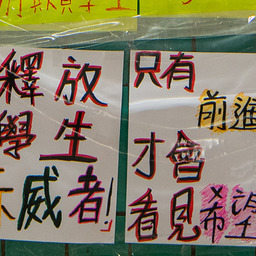 釋放
學生
示威者!
只有
前進
才會
看見希望